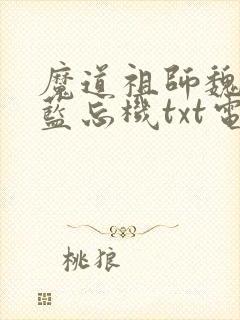 魔道祖師魏
藍忘機txt電
桃狼